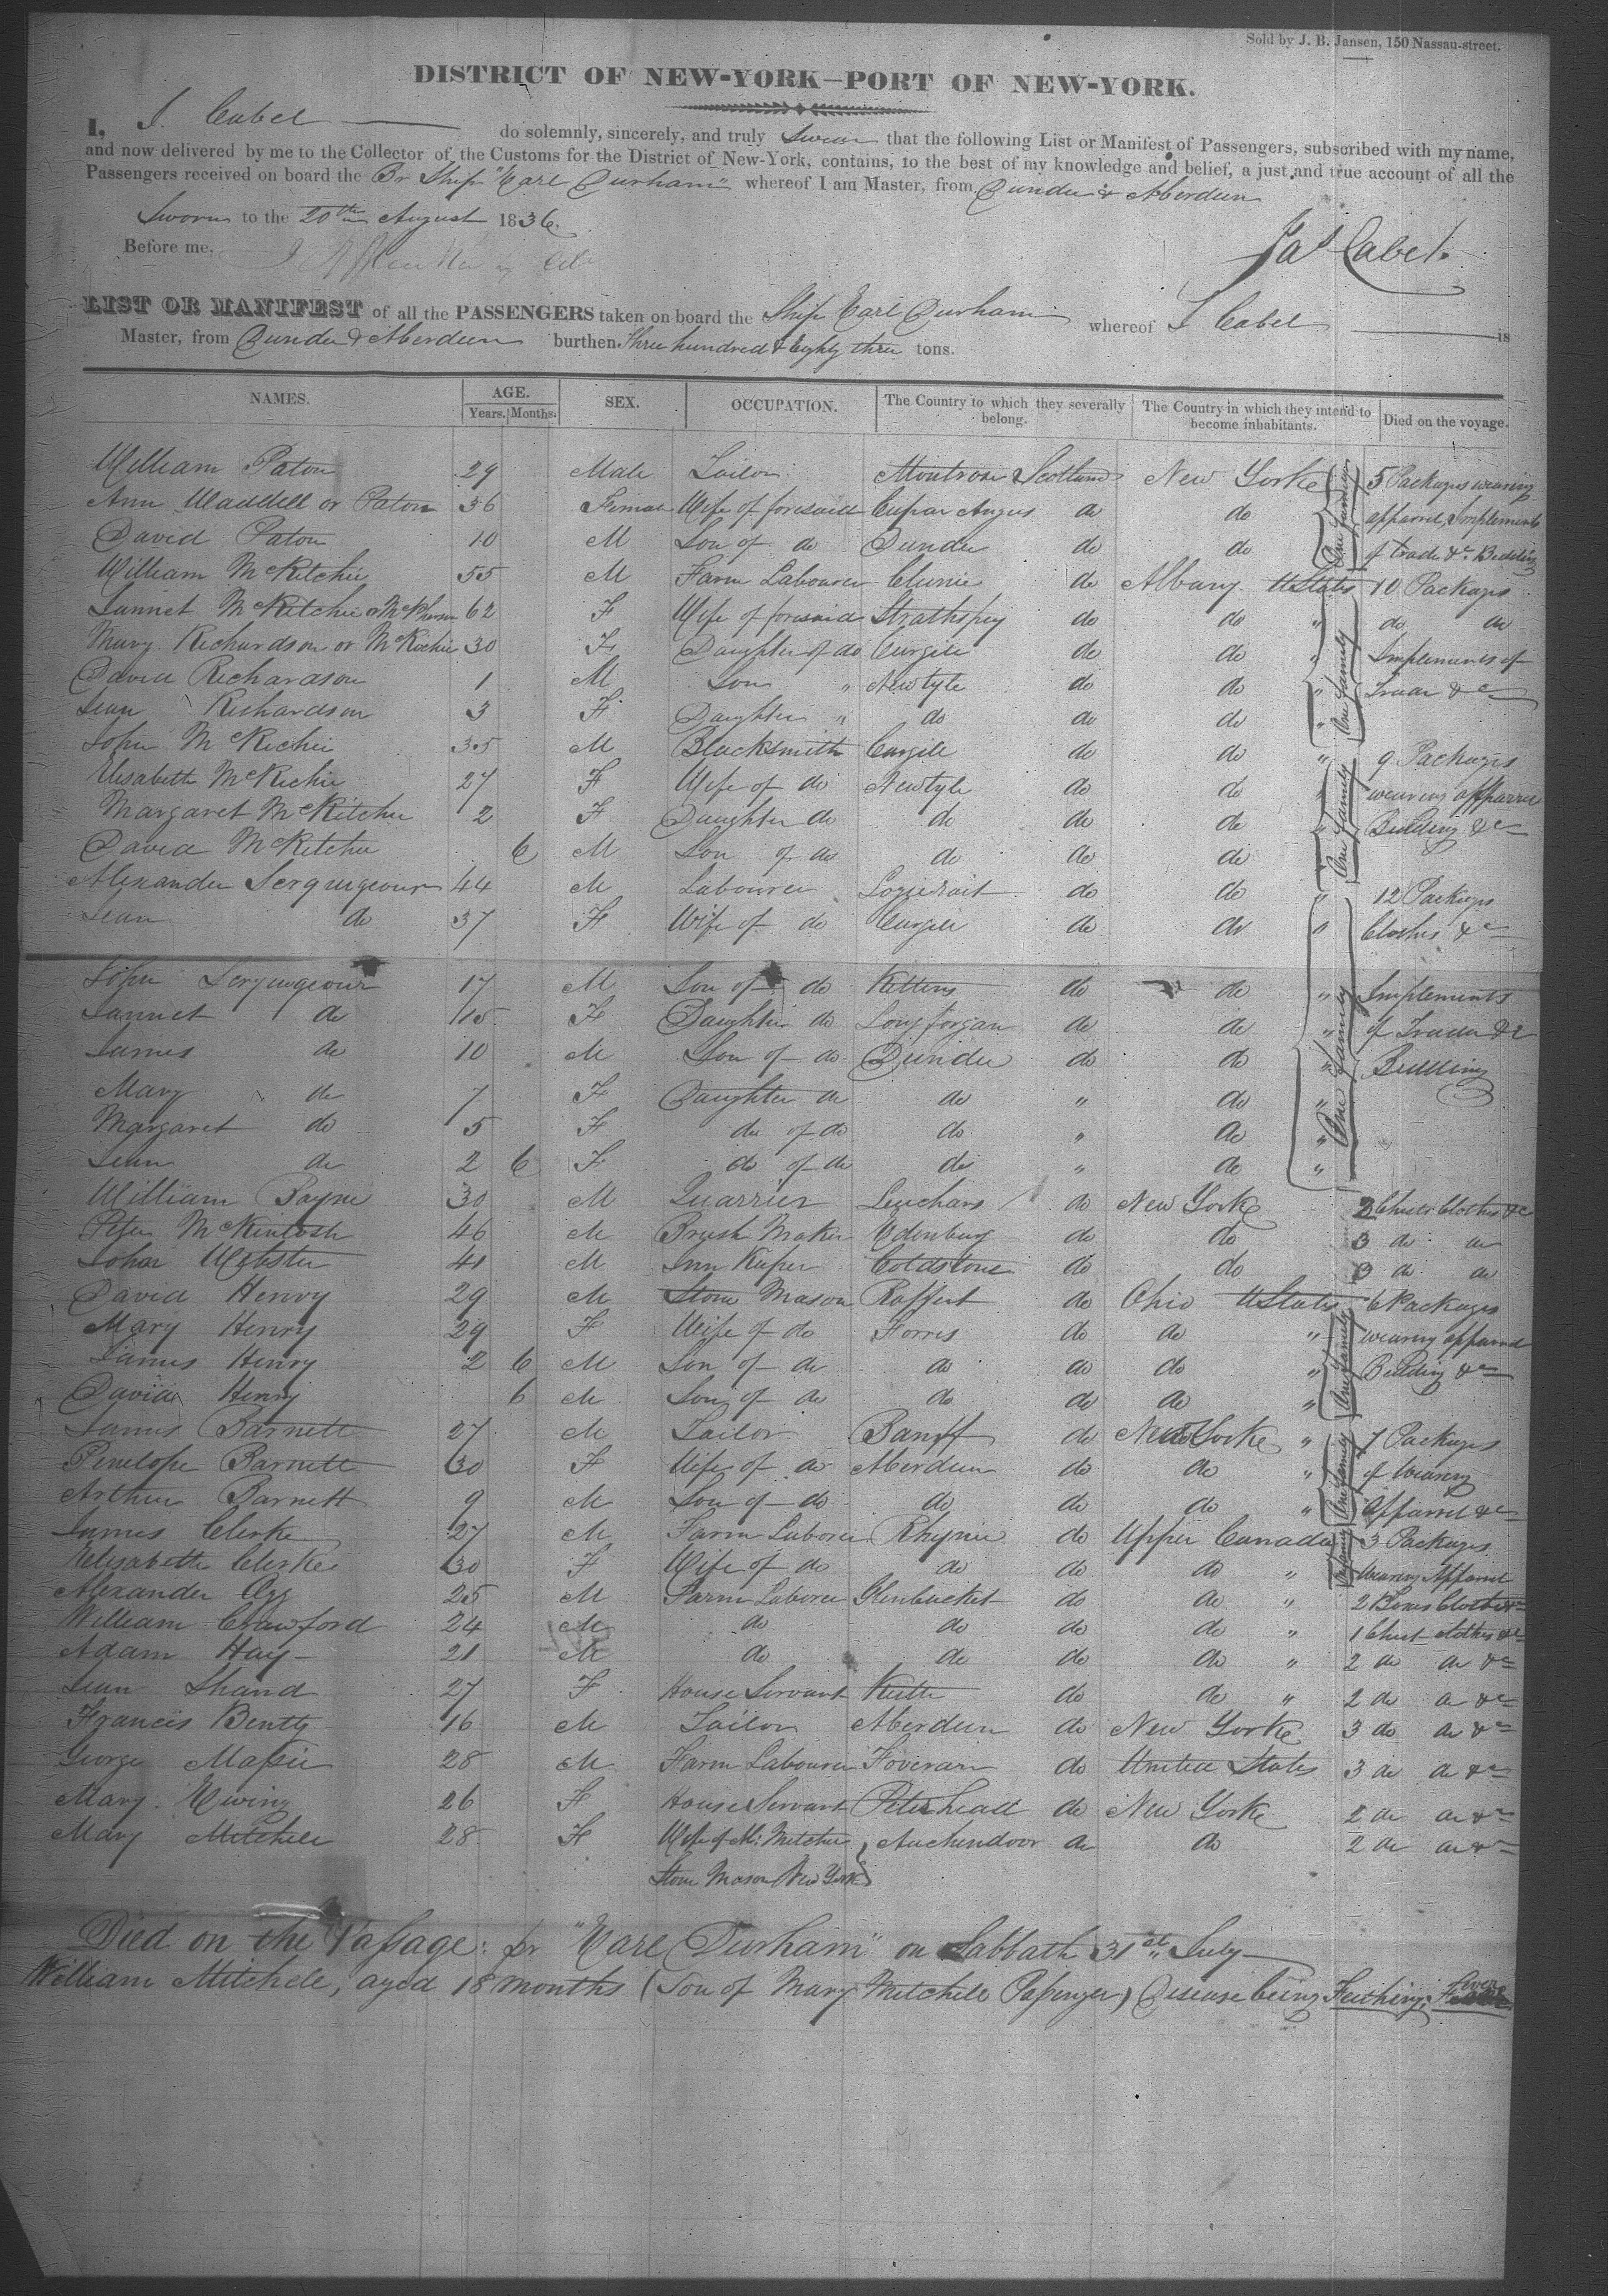 Sold by J. B. Jansen, 150 Nassau-street.
DISTRICT OF NEW-YORK—PORT OF NEW-YORK.
I, J. Cabel do solemnly, sincerely, and truly Swear that the following List or Manifest of Passengers, subscribed with my name,
and now delivered by me to the Collector of the Customs for the District of New-York, contains, to the best of my knowledge and belief, a just and true account of all the
Passengers received on board the Br Ship "Earl Durham" whereof I am Master, from Dundee & Aberdeen
Sworn to the 20th August 1836.
Before me,
Jas Cabel.
LIST OR MANIFEST of all the PASSENGERS taken on board the Ship Earl Durham whereof J Cabel is
Master, from Dundee & Aberdeen burthen Three hundred & Eighty three tons.
NAMES. AGE. Years. Months. SEX. OCCUPATION. The Country to which they severally belong. The Country in which they intend to become inhabitants. Died on the voyage.
William Paton 29 Male Tailor Montrose Scotland New York 5 Packages wearing
Ann Waddell or Paton 36 Female Wife of foresaid Cupar Angus do do apparrel, Implements
David Paton 10 M Son of do Dundee do do of trade &c Bedding
One family
William McRitchie 55 M Farm Labourer Clunie do Albany U States 10 Packages
Jannet McRitchie or McPherson 62 F Wife of foresaid Strathspey do do " do do
Mary Richardson or McRichie 30 F Daughter of do Cargile do do " Implements of
David Richardson 1 M Son " Newtyle do do " Trade &c
Jean Richardson 3 F Daughter " do do do "
One family
John McRichie 35 M Blacksmith Cargile do do " 9 Packages
Elisabeth McRichie 27 F Wife of do Newtyle do do " wearing apparrel
Margaret McRitchie 2 F Daughter do do do do " Bedding &c
David McRitchie 6 M Son of do do do do "
One family
Alexander Scrgungeour 44 M Labourer Logierait do do " 12 Packages
Jean do 37 F Wife of do Cargile do do " Clothes &c
John Scrymgeour 17 M Son of do Kettins do do " Implements
Jannet do 15 F Daughter do Longforgan do do " of Trade &c
James do 10 M Son of do Dundee do do " Bedding
Mary do 7 F Daughter do do " do "
Margaret do 5 F do of do do " do "
Jean do 2 6 F do of do do " do "
One family
William Bayne 30 M Quarrier Leuchars do New York 2 Chests Clothes &c
Peter McKintosh 46 M Brush Maker Edenburg do do 3 do do
John Webster 41 M Inn Keeper Coldstone do do 3 do do
David Henry 29 M Stone Mason Raffert do Ohio U States 6 Packages
Mary Henry 29 F Wife of do Forres do do " wearing apparrel
James Henry 2 6 M Son of do do do do " Bedding &c
David Henry 6 M Son of do do do do "
One family
James Barnett 27 M Tailor Banff do New York " 7 Packages
Penelope Barnett 30 F Wife of do Aberdeen do do " of Wearing
Arthur Barnett 9 M Son of do do do do " Apparrel &c
One family
James Clerke 27 M Farm Laborer Rhynie do Upper Canada 3 Packages
Elisabeth Clerke 30 F Wife of do do do do " Wearing Apparrel
Alexander Ogg 25 M Farm Laborer Glenbucket do do " 2 Boxes Clothes &c
William Crawford 24 M do do do do " 1 Chest Clothes &c
Adam Hay 21 M do do do do " 2 do do &c
Jean Shand 27 F House Servant Keith do do " 2 do do &c
Francis Benty 16 M Tailor Aberdeen do New York 3 do do &c
George Massie 28 M Farm Labourer Foveran do United States 3 do do &c
Mary Ewing 26 F House Servant Peterhead do New York 2 do do &c
Mary Mitchele 28 F Wife of Al: Mitchele Auchendoor do do 2 do do &c
Stone Mason New York
Died on the Passage: pr "Earl Durham" on Sabbath 31st July
William Mitchele, aged 18 months (Son of Mary Mitchele Passenger) Disease being Teething Fever